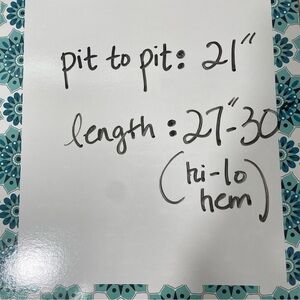 pit to pit: 21"
length: 27"-30
(hi-lo
hem)